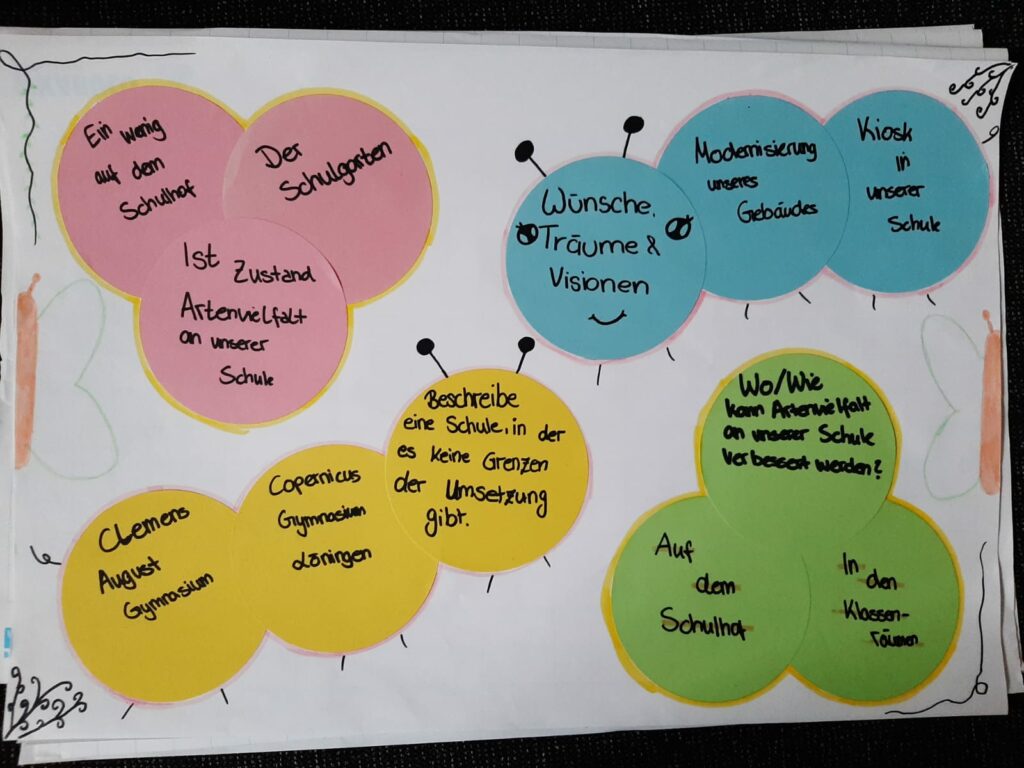 Ein wenig
auf dem
Schulhof
Der
Schulgarten
Ist Zustand
Artenvielfalt
an unserer
Schule
Wünsche,
Träume &
Visionen
Modernisierung
unseres
Gebäudes
Kiosk
in
unserer
Schule
Beschreibe
eine Schule, in der
es keine Grenzen
der Umsetzung
gibt.
Copernicus
Gymnasium
Löningen
Clemens
August
Gymnasium
Wo/Wie
kann Artenvielfalt
an unserer Schule
verbessert werden?
Auf
dem
Schulhof
In
den
Klassen-
räumen